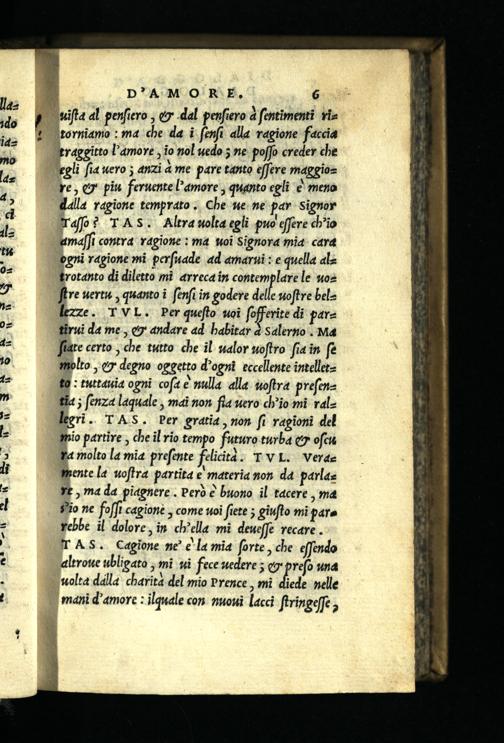 D'AMORE. 6
uista al pensiero, & dal pensiero à sentimenti ri=
torniamo: ma che da i sensi alla ragione faccia
traggitto l'amore, io nol uedo; ne posso creder che
egli sia uero; anzi à me pare tanto essere maggio=
re, & piu feruente l'amore, quanto egli è meno
dalla ragione temprato. Che ue ne par Signor
Tasso? TAS. Altra uolta egli puo essere ch'io
amassi contra ragione: ma uoi Signora mia cara
ogni ragione mi persuade ad amarui: e quella al=
trotanto di diletto mi arreca in contemplare le uo=
stre uertu, quanto i sensi in godere delle uostre bel=
lezze. TVL. Per questo uoi sofferite di par=
tirui da me, & andare ad habitar à Salerno. Ma
siate certo, che tutto che il ualor uostro sia in se
molto, & degno oggetto d'ogni eccellente intellet=
to: tuttauia ogni cosa è nulla alla uostra presen=
tia; senza laquale, mai non fia uero ch'io mi ral=
legri. TAS. Per gratia, non si ragioni del
mio partire, che il rio tempo futuro turba & oscu
ra molto la mia presente felicità. TVL. Vera=
mente la uostra partita è materia non da parla=
re, ma da piagnere. Però è buono il tacere, ma
s'io ne fossi cagione, come uoi siete; giusto mi par=
rebbe il dolore, in ch'ella mi deuesse recare.
TAS. Cagione ne' è la mia sorte, che essendo
altroue ubligato, mi ui fece uedere; & preso una
uolta dalla charità del mio Prence, mi diede nelle
mani d'amore: ilquale con nuoui lacci stringesse,